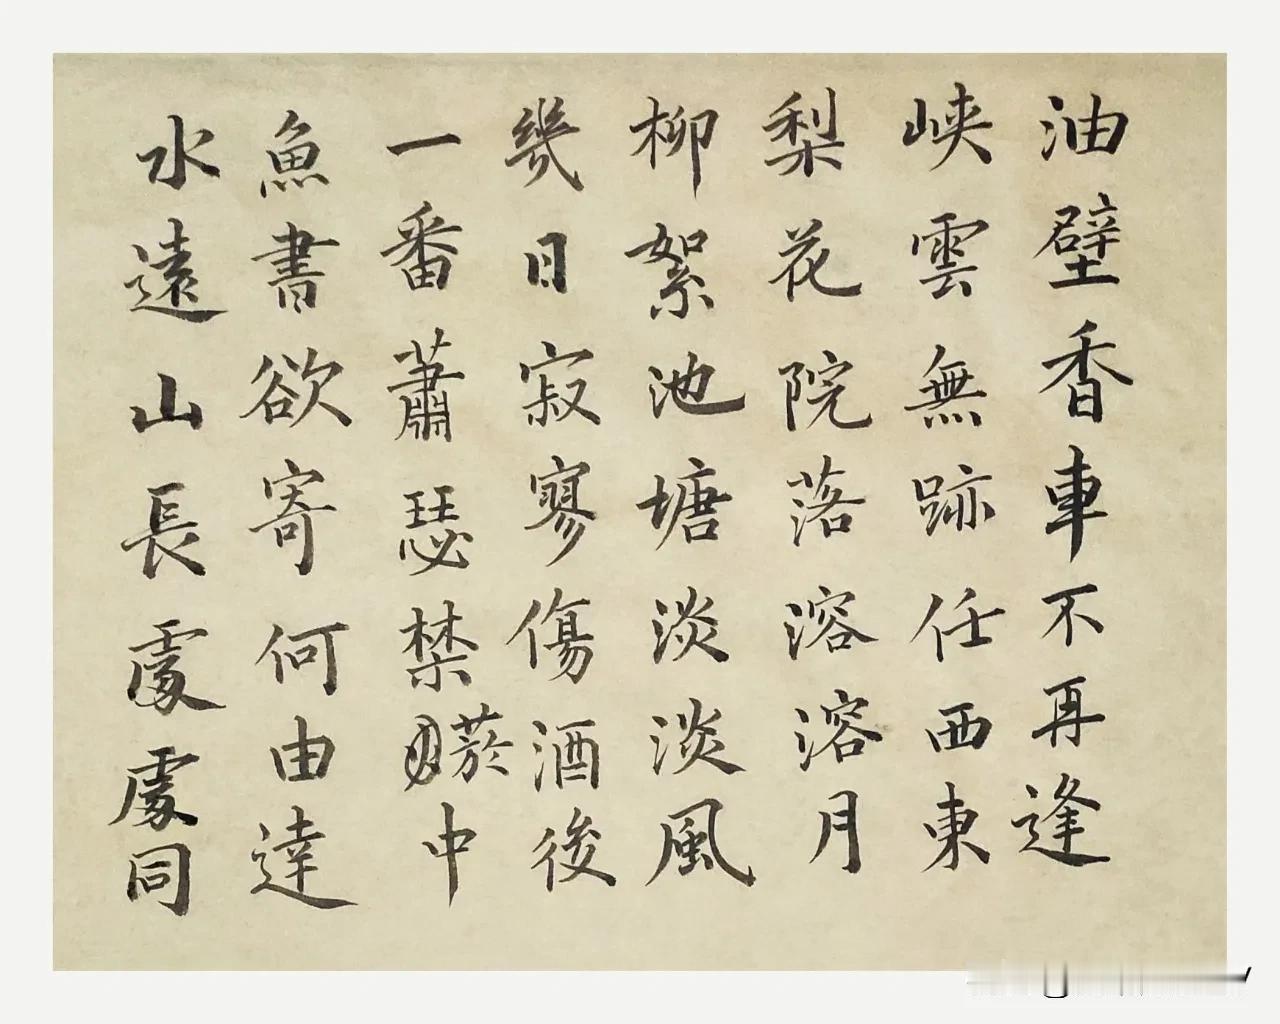 油壁香車不再逢
峽雲無跡任西東
梨花院落溶溶月
柳絮池塘淡淡風
幾日寂寥傷酒後
一番蕭瑟禁菸中
魚書欲寄何由達
水遠山長處處同